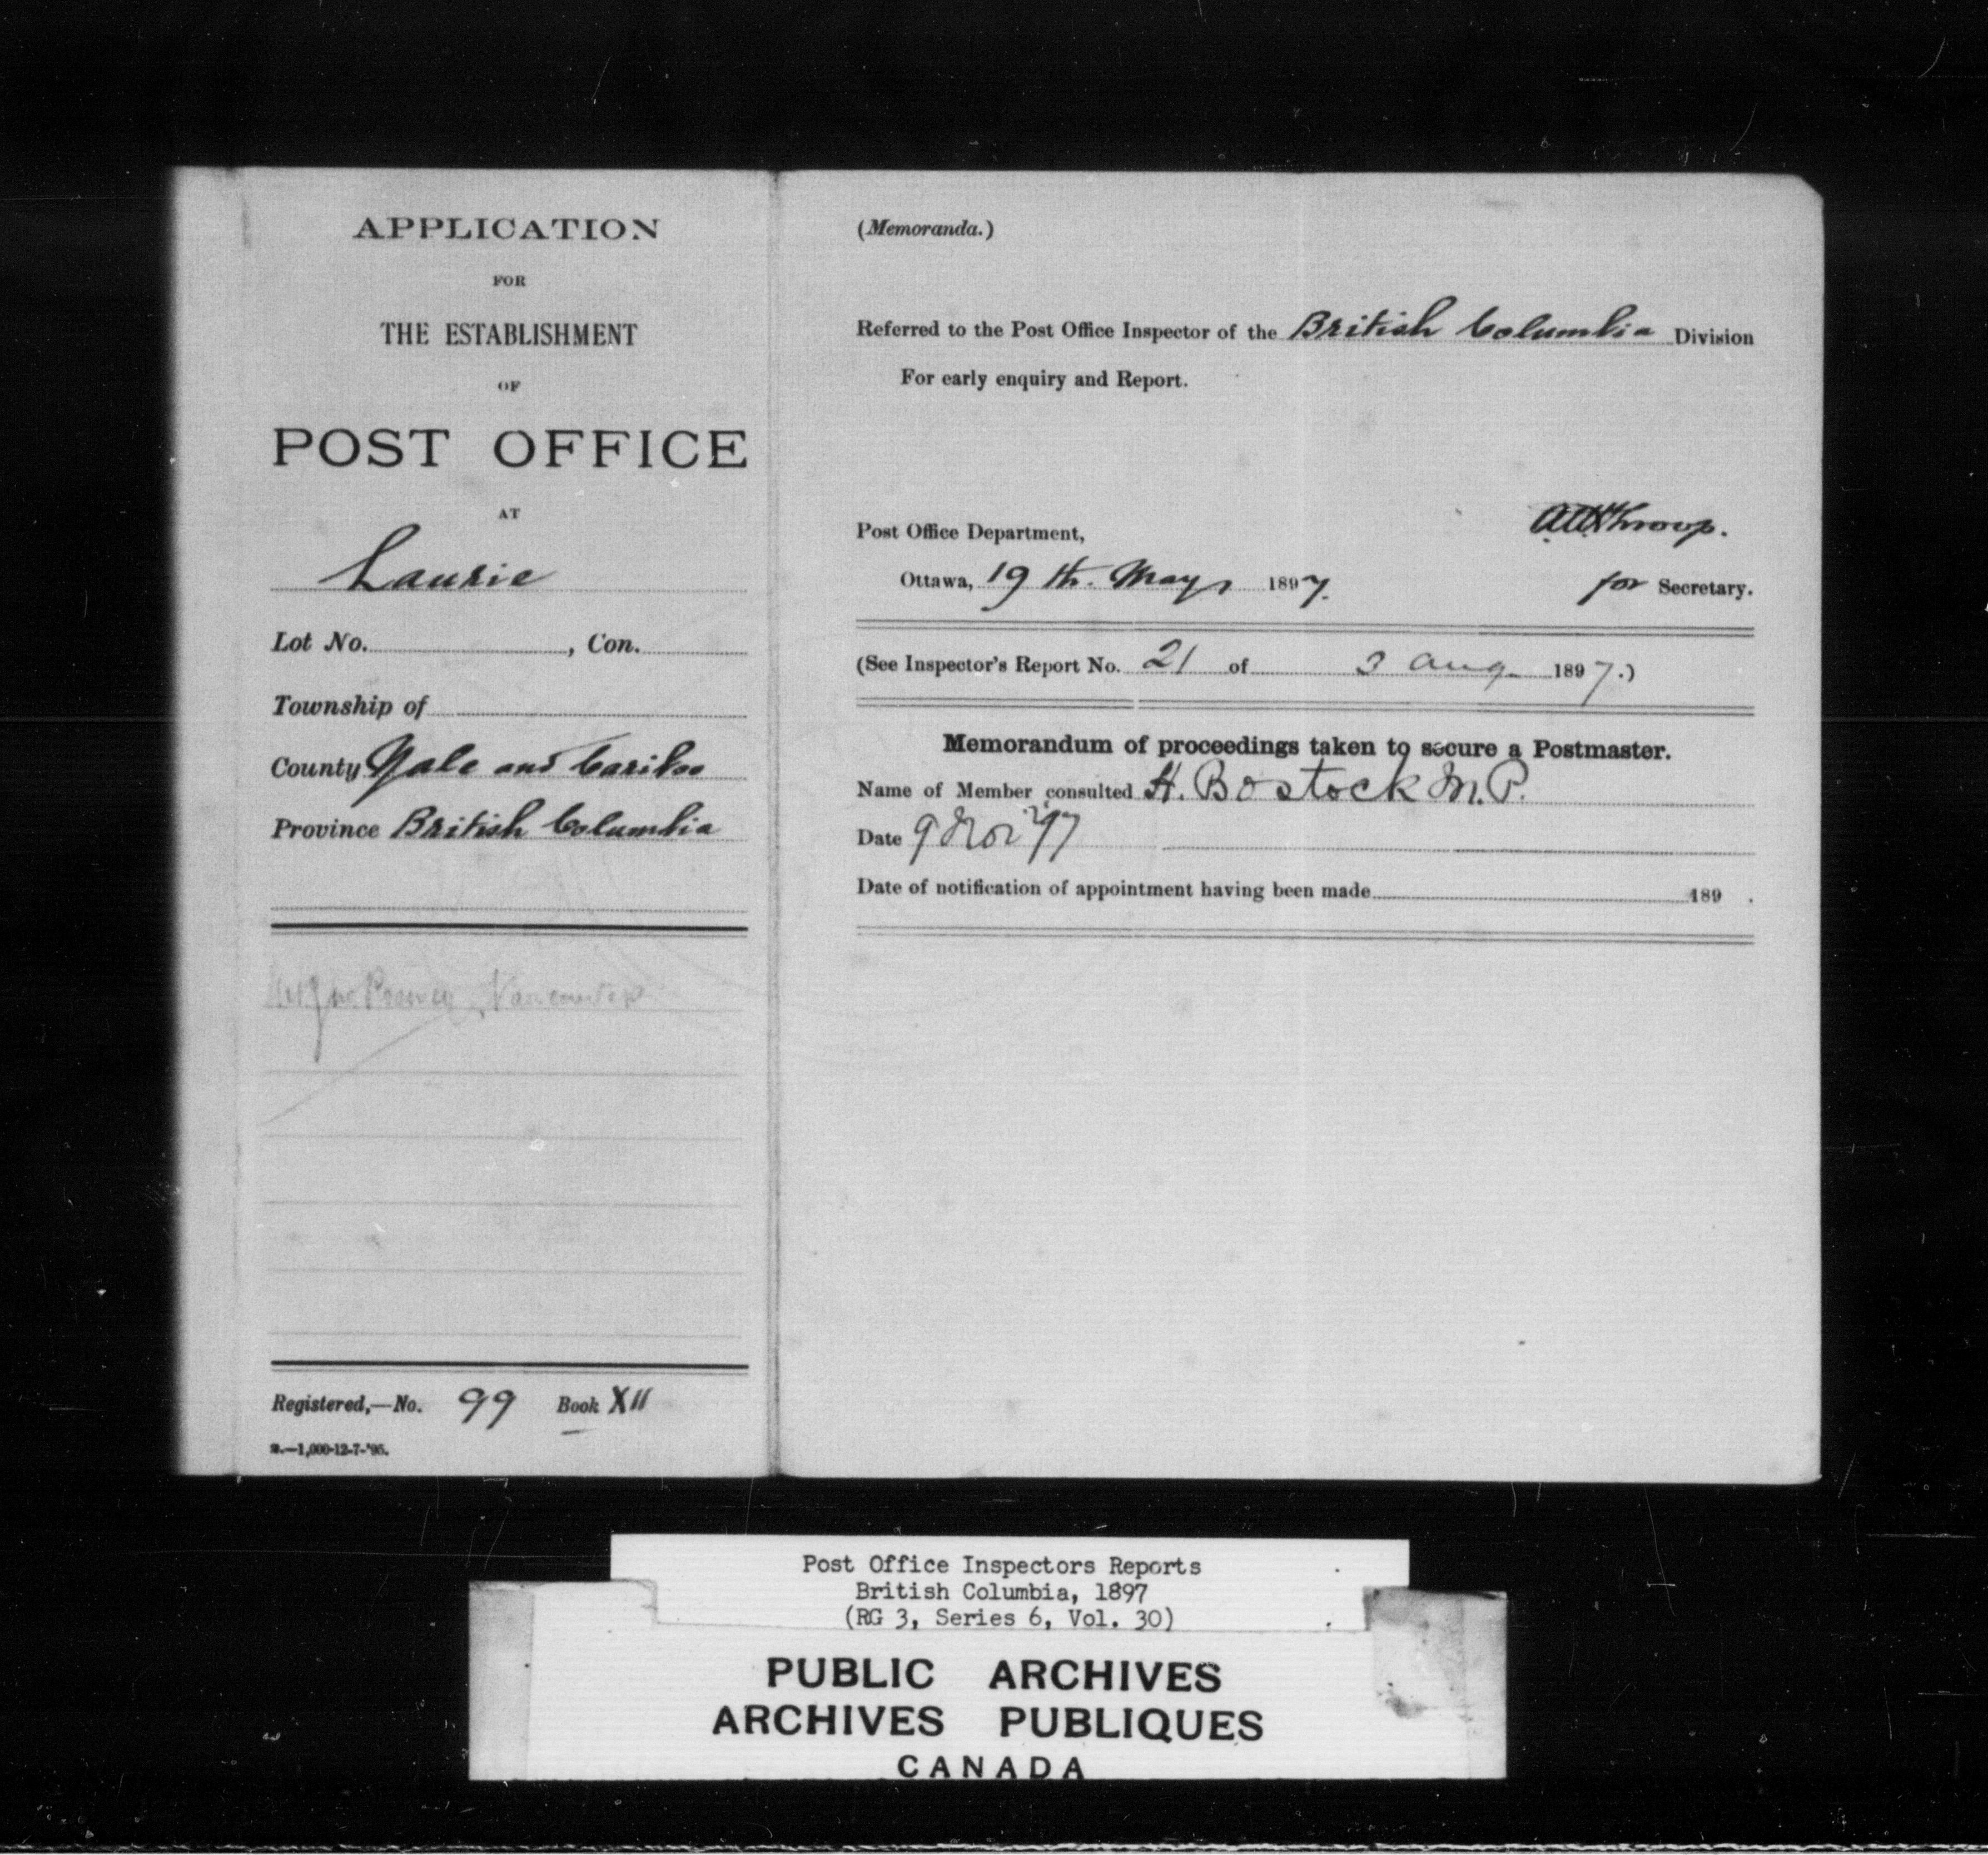 APPLICATION
FOR
THE ESTABLISHMENT
OF
POST OFFICE
AT
Laurie
Lot No. , Con.
Township of
County Yale and Cariboo
Province British Columbia
Vancouver
Registered,—No. 99 Book XII
—1,000-12-7-'95.
(Memoranda.)
Referred to the Post Office Inspector of the British Columbia Division
For early enquiry and Report.
Post Office Department,
Throop.
Ottawa, 19th. May 1897.
for Secretary.
(See Inspector's Report No. 21 of 3 Aug. 1897.)
Memorandum of proceedings taken to secure a Postmaster.
Name of Member consulted H. Bostock M.P.
Date 9 Nov '97
Date of notification of appointment having been made 189 .
Post Office Inspectors Reports
British Columbia, 1897
(RG 3, Series 6, Vol. 30)
PUBLIC ARCHIVES
ARCHIVES PUBLIQUES
CANADA